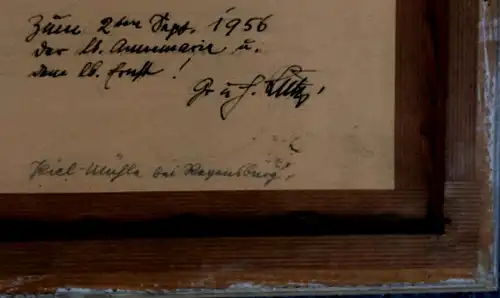 Zum 2ten Sept. 1956
der lb. Annemarie u.
dem lb. Ernst!
G. u. J.
Kiel-Mühle bei Regensburg.